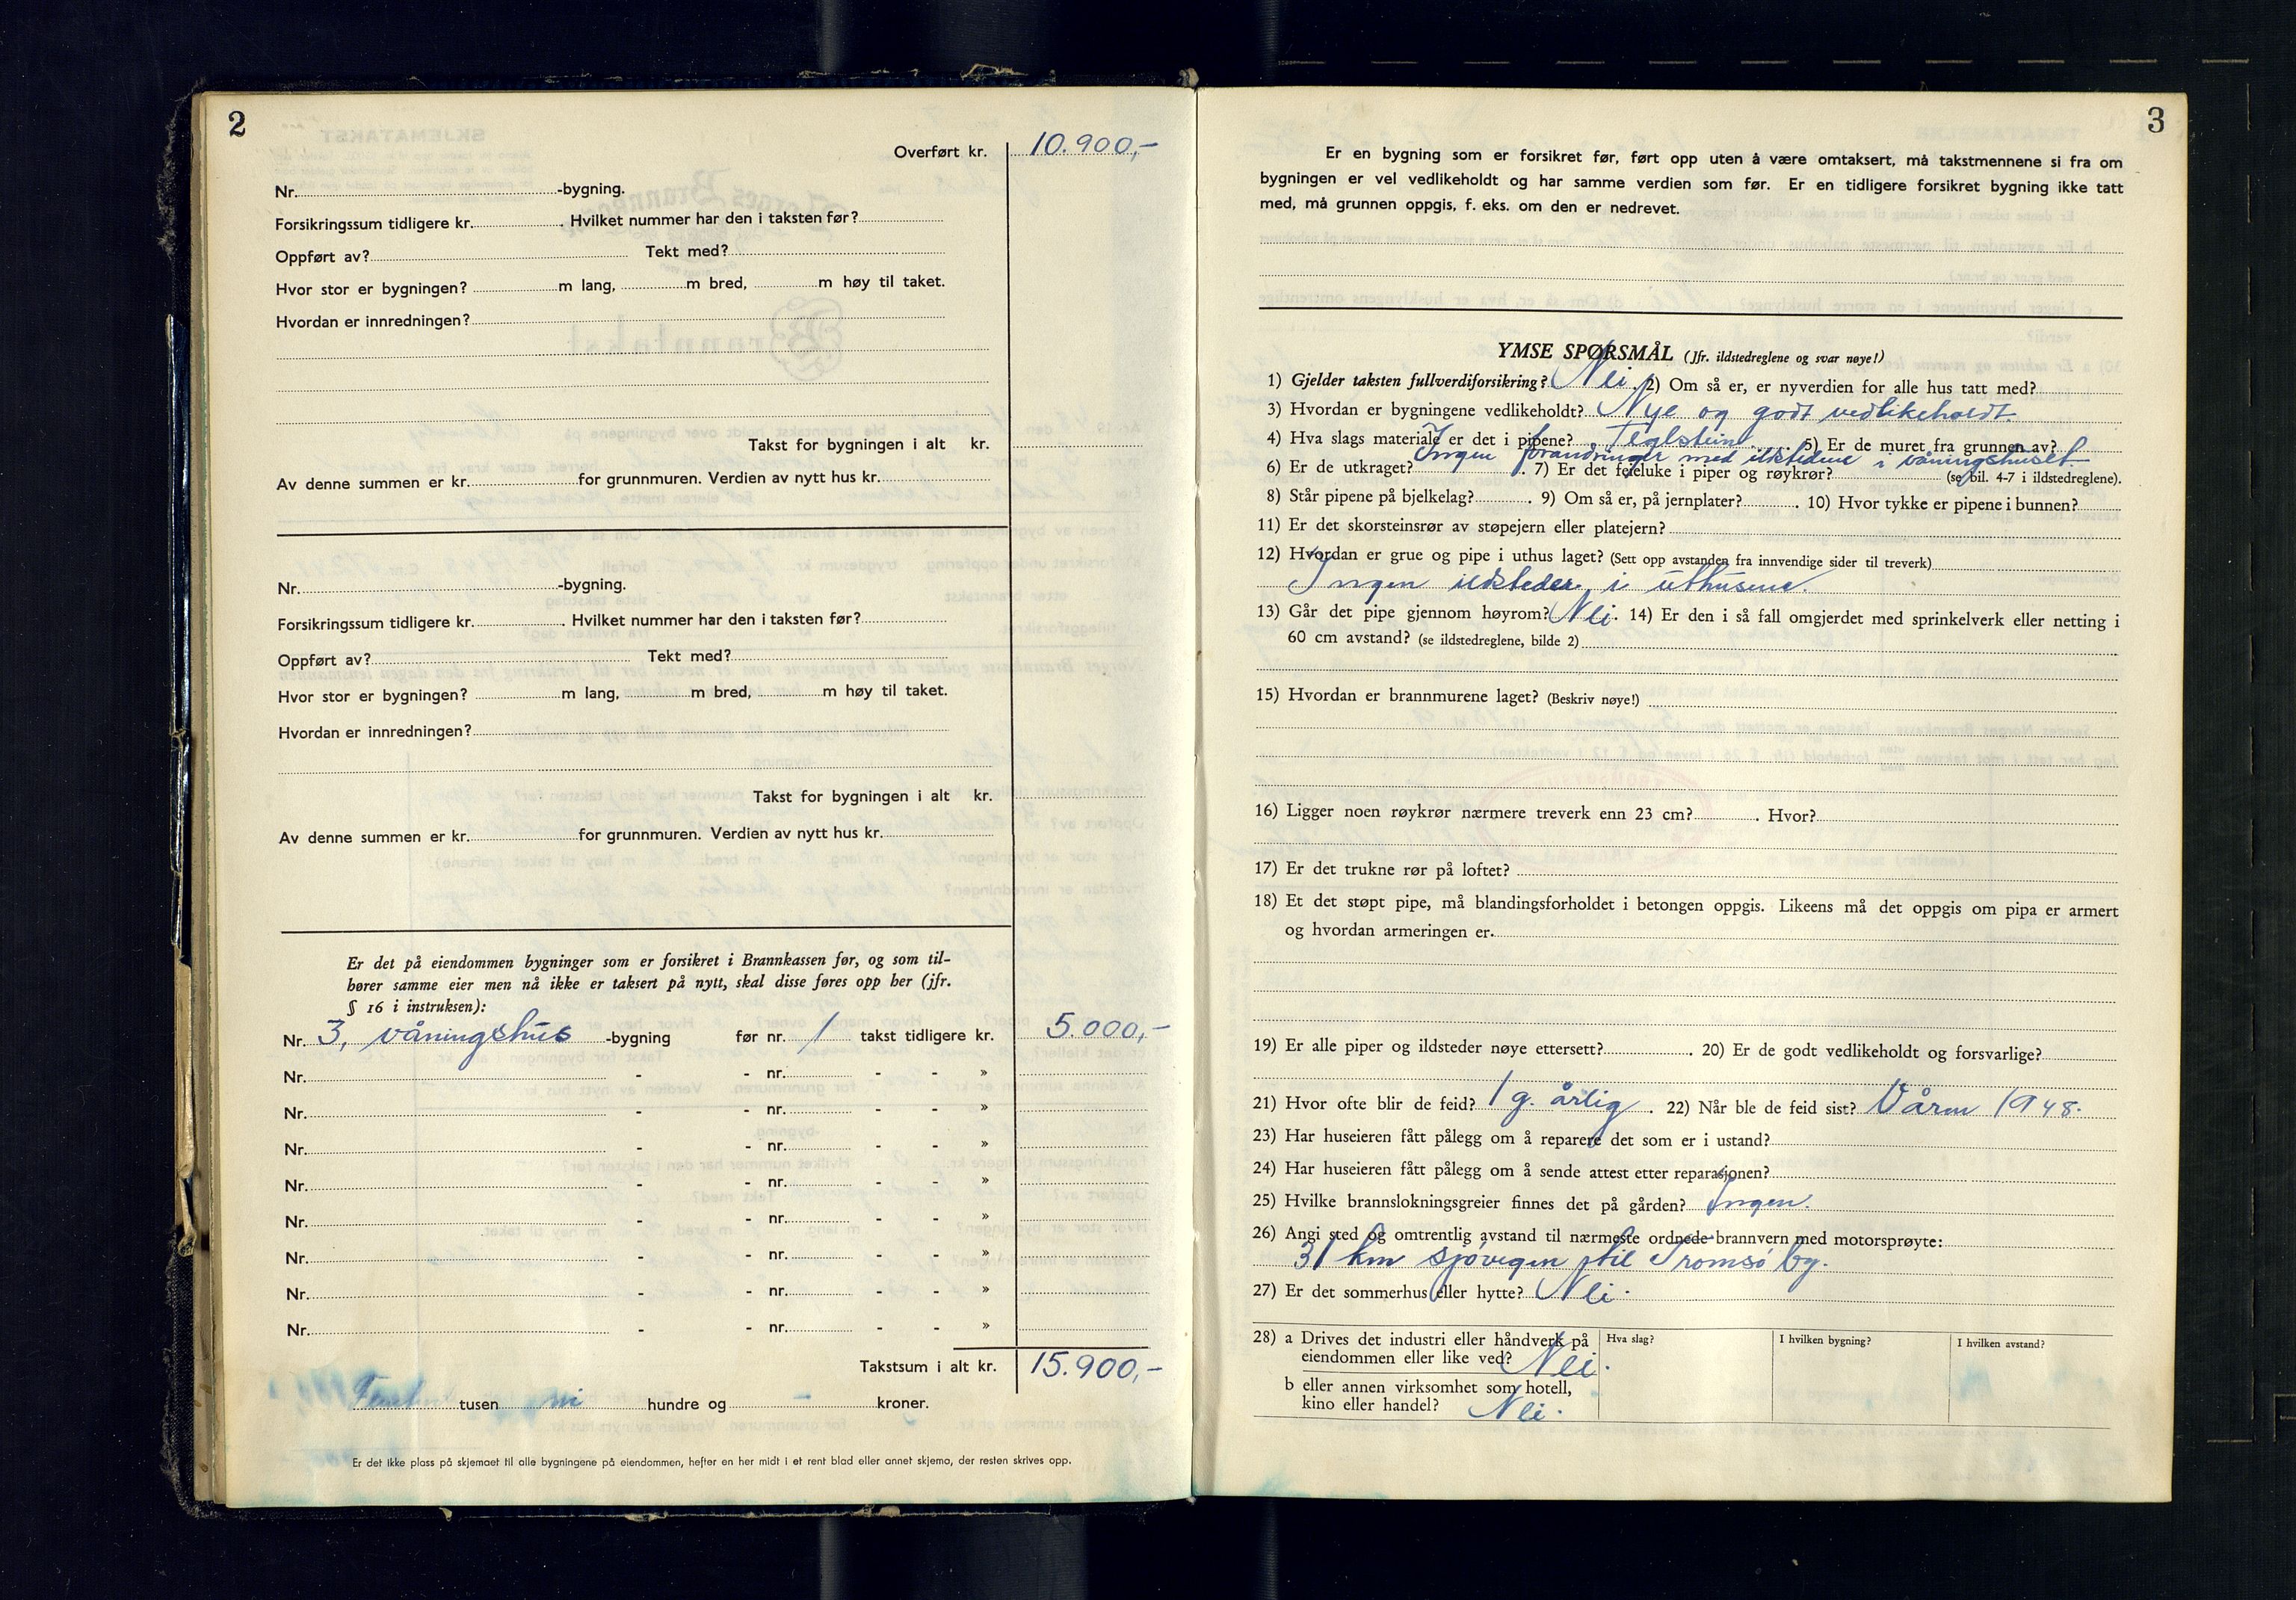 2
Overført kr. 10.900,-
Nr. -bygning.
Forsikringssum tidligere kr. . Hvilket nummer har den i taksten før?
Oppført av? Tekt med?
Hvor stor er bygningen? m lang, m bred, m høy til taket.
Hvordan er innredningen?
Takst for bygningen i alt kr.
Av denne summen er kr. for grunnmuren. Verdien av nytt hus kr.
Nr. -bygning.
Forsikringssum tidligere kr. . Hvilket nummer har den i taksten før?
Oppført av? Tekt med?
Hvor stor er bygningen? m lang, m bred, m høy til taket.
Hvordan er innredningen?
Takst for bygningen i alt kr.
Av denne summen er kr. for grunnmuren. Verdien av nytt hus kr.
Er det på eiendommen bygninger som er forsikret i Brannkassen før, og som til-
hører samme eier men nå ikke er taksert på nytt, skal disse føres opp her (jfr.
§ 16 i instruksen):
Nr. 3, våningshus -bygning før nr. 1 takst tidligere kr. 5.000,-
Nr. - - nr. - - »
Nr. - - nr. - - »
Nr. - - nr. - - »
Nr. - - nr. - - »
Nr. - - nr. - - »
Nr. - - nr. - - »
Nr. - - nr. - - »
Nr. - - nr. - - »
Takstsum i alt kr. 15.900,-
tusen ni hundre og - kroner.
Er det ikke plass på skjemaet til alle bygningene på eiendommen, hefter en her midt i et rent blad eller annet skjema, der resten skrives opp.
3
Er en bygning som er forsikret før, ført opp uten å være omtaksert, må takstmennene si fra om
bygningen er vel vedlikeholdt og har samme verdien som før. Er en tidligere forsikret bygning ikke tatt
med, må grunnen oppgis, f. eks. om den er nedrevet.
YMSE SPØRSMÅL (Jfr. ildstedreglene og svar nøye!)
1) Gjelder taksten fullverdiforsikring? Nei. 2) Om så er, er nyverdien for alle hus tatt med?
3) Hvordan er bygningene vedlikeholdt? Nye og godt vedlikeholdt.
4) Hva slags materiale er det i pipene? Teglstein. 5) Er de muret fra grunnen av?
Ingen forandringer med ildstedene i våningshuset
6) Er de utkraget? . 7) Er det feieluke i piper og røykrør? (se bil. 4-7 i ildstedreglene).
8) Står pipene på bjelkelag? . 9) Om så er, på jernplater? . 10) Hvor tykke er pipene i bunnen?
11) Er det skorsteinsrør av støpejern eller platejern?
12) Hvordan er grue og pipe i uthus laget? (Sett opp avstanden fra innvendige sider til treverk)
Ingen ildsteder i uthusene.
13) Går det pipe gjennom høyrom? Nei. 14) Er den i så fall omgjerdet med sprinkelverk eller netting i
60 cm avstand? (se ildstedreglene, bilde 2)
15) Hvordan er brannmurene laget? (Beskriv nøye!)
16) Ligger noen røykrør nærmere treverk enn 23 cm? . Hvor?
17) Er det trukne rør på loftet?
18) Et det støpt pipe, må blandingsforholdet i betongen oppgis. Likeens må det oppgis om pipa er armert
og hvordan armeringen er.
19) Er alle piper og ildsteder nøye ettersett? . 20) Er de godt vedlikeholdt og forsvarlige?
21) Hvor ofte blir de feid? 1 g. årlig . 22) Når ble de feid sist? Våren 1948.
23) Har huseieren fått pålegg om å reparere det som er i ustand?
24) Har huseieren fått pålegg om å sende attest etter reparasjonen?
25) Hvilke brannslokningsgreier finnes det på gården? Ingen.
26) Angi sted og omtrentlig avstand til nærmeste ordnede brannvern med motorsprøyte:
31 km sjövegen til Tromsö by.
27) Er det sommerhus eller hytte? Nei.
28) a Drives det industri eller håndverk på
eiendommen eller like ved? Nei.
Hva slag? I hvilken bygning? I hvilken avstand?
b eller annen virksomhet som hotell,
kino eller handel? Nei.